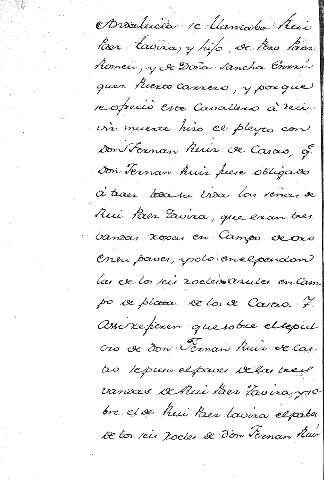 Andalucia se llamaba Rui
Paez Tavira, y hijo, de Pero Paez
Romeu, y de Doña Sancha Enrri-
quez Puerto carrero, y porque
se ofreció este Cavallero à reci-
vir muerte hizo el pleyto con
Don Fernan Ruiz de Castro, q.
Don Fernan Ruiz fuese obligado
à traer toda su vida las señas de
Rui Paez Tavira, que eran tres
vandas roxas en Campo de oro
en su paves, y solo en el pendon
las de los seis roeles azules en Cam-
po de plata de los de Castro. Y
assi refieren que sobre el sepul-
cro de Don Fernan Ruiz de Cas-
tro se puso el paves de las tres
vandas de Rui Paez Tavira, y so-
bre el de Rui Paez Tavira el paves
de los seis roeles de Don Fernan Ruiz